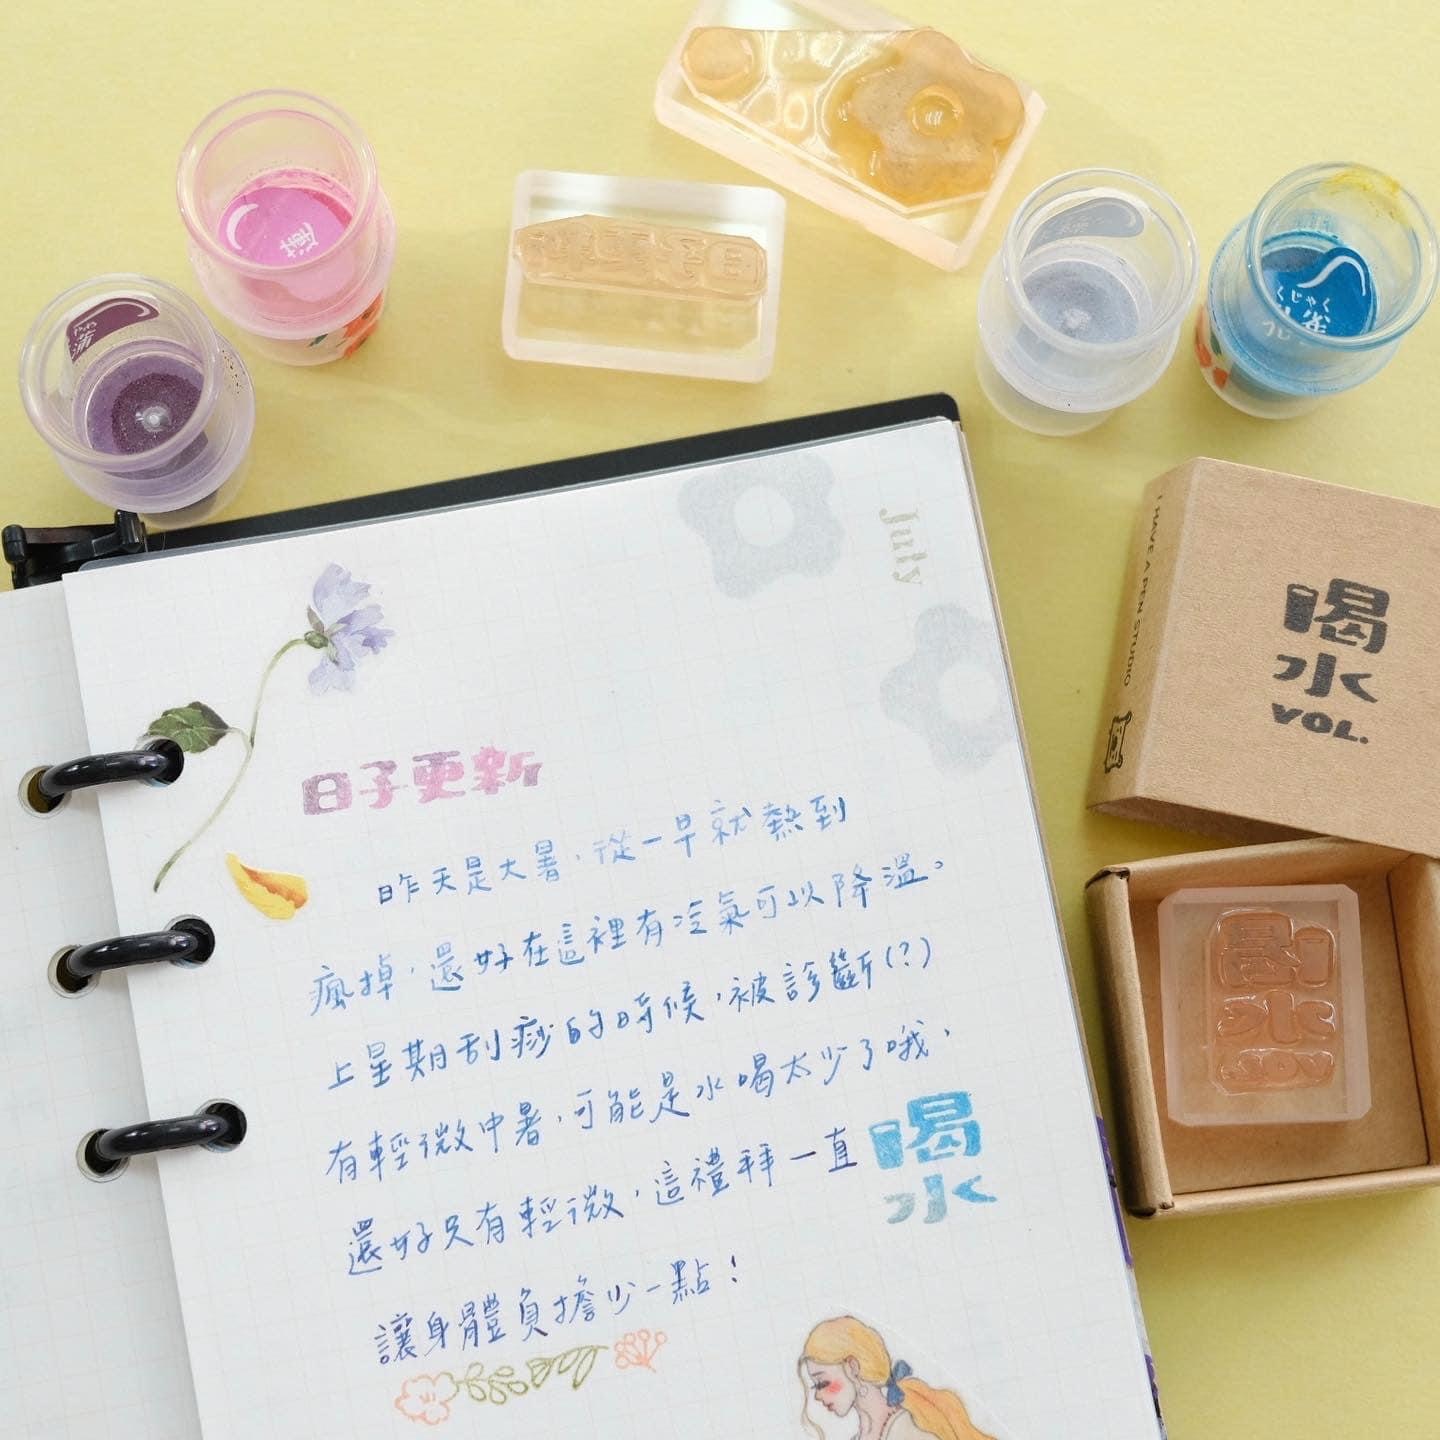 くじゃく
July
I HAVE A PEN STUDIO
喝
水
VOL.
日子更新
昨天是大暑，從一早就熱到
瘋掉，還好在這裡有冷氣可以降溫。
上星期刮痧的時候，被診斷(?)
有輕微中暑，可能是水喝太少了哦，
還好只有輕微，這禮拜一直喝
水
讓身體負擔少一點！